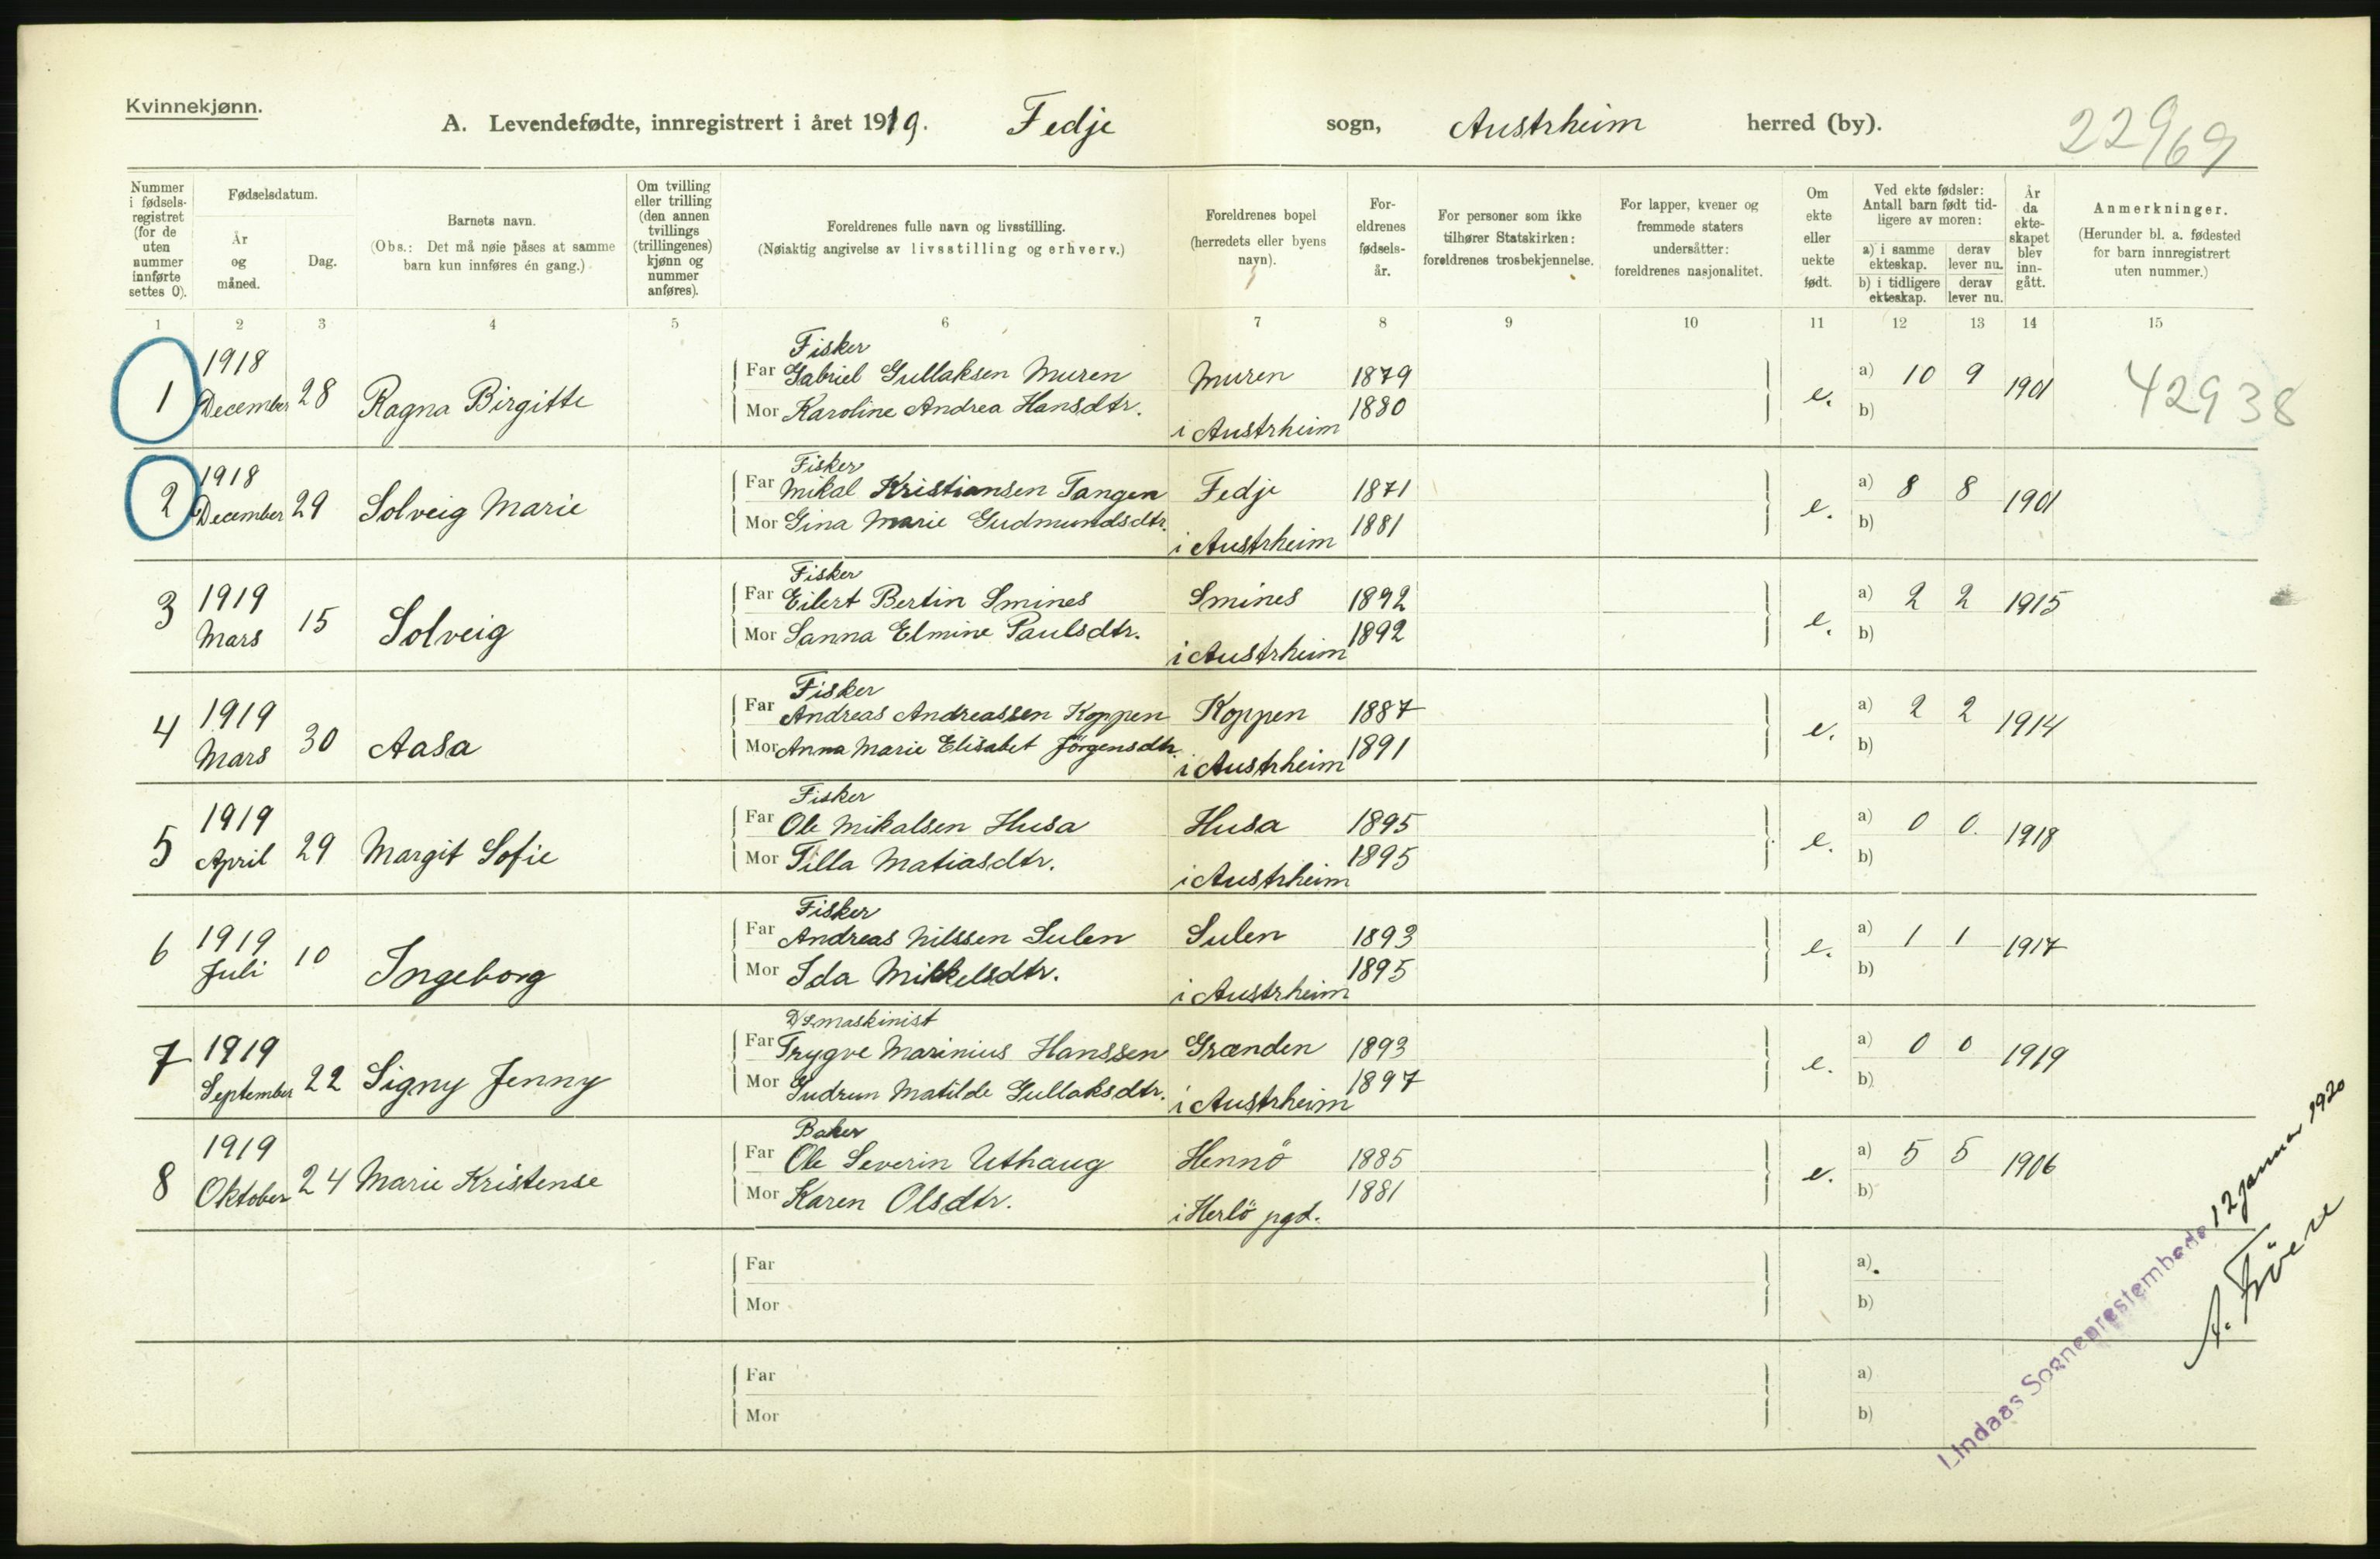 Kvinnekjønn.
A. Levendefødte, innregistrert i året 1919. Fedje sogn, Austrheim herred (by).
22969
Nummer i fødsels-registret (for de uten nummer innførte settes 0).
Fødselsdatum.
År og måned.
Dag.
Barnets navn.
(Obs.: Det må nøie påses at samme barn kun innføres én gang.)
Om tvilling eller trilling (den annen tvillings (trillingenes) kjønn og nummer anføres).
Foreldrenes fulle navn og livsstilling.
(Nøiaktig angivelse av livsstilling og erhverv.)
Foreldrenes bopel (herredets eller byens navn).
For-eldrenes fødsels-år.
For personer som ikke tilhører Statskirken: foreldrenes trosbekjennelse.
For lapper, kvener og fremmede staters undersåtter: foreldrenes nasjonalitet.
Om ekte eller uekte født.
Ved ekte fødsler: Antall barn født tid-ligere av moren:
a) i samme ekteskap. derav lever nu.
b) i tidligere ekteskap. derav lever nu.
År da ekte-skapet blev inn-gått.
Anmerkninger.
(Herunder bl. a. fødested for barn innregistrert uten nummer.)
1 2 3 4 5 6 7 8 9 10 11 12 13 14 15
1 1918 December 28 Ragna Birgitte
Fisker
Far Gabriel Gullaksen Muren Muren 1879
Mor Karoline Andrea Hansdtr. i Austrheim 1880
e. a) 10 9 1901
b)
42938
2 1918 December 29 Solveig Marie
Fisker
Far Mikal Kristiansen Tangen Fedje 1871
Mor Gina Marie Gudmundsdtr. i Austrheim 1881
e. a) 8 8 1901
b)
3 1919 Mars 15 Solveig
Fisker
Far Eilert Bertin Smines Smines 1892
Mor Sanna Elmine Paulsdtr. i Austrheim 1892
e. a) 2 2 1915
b)
4 1919 Mars 30 Aasa
Fisker
Far Andreas Andreassen Koppen Koppen 1887
Mor Anna Marie Elisabet Jörgensdtr. i Austrheim 1891
e. a) 2 2 1914
b)
5 1919 April 29 Margit Sofie
Fisker
Far Ole Mikalsen Husa Husa 1895
Mor Tilla Matiasdtr. i Austrheim 1895
e. a) 0 0. 1918
b)
6 1919 Juli 10 Ingeborg
Fisker
Far Andreas Nilssen Sulen Sulen 1893
Mor Ida Mikkelsdtr. i Austrheim 1895
e. a) 1 1 1917
b)
7 1919 September 22 Signy Jenny
D/S maskinist
Far Trygve Marinius Hanssen Grænden 1893
Mor Gudrun Matilde Gullaksdtr. i Austrheim 1897
e. a) 0 0 1919
b)
8 1919 Oktober 24 Marie Kristense
Baker
Far Ole Severin Uthaug Hennö 1885
Mor Karen Olsdtr. i Herlö pgd. 1881
e. a) 5 5 1906
b)
Far a)
Mor b)
Far a)
Mor b)
Lindaas Sogneprestembede 12 januar 1920